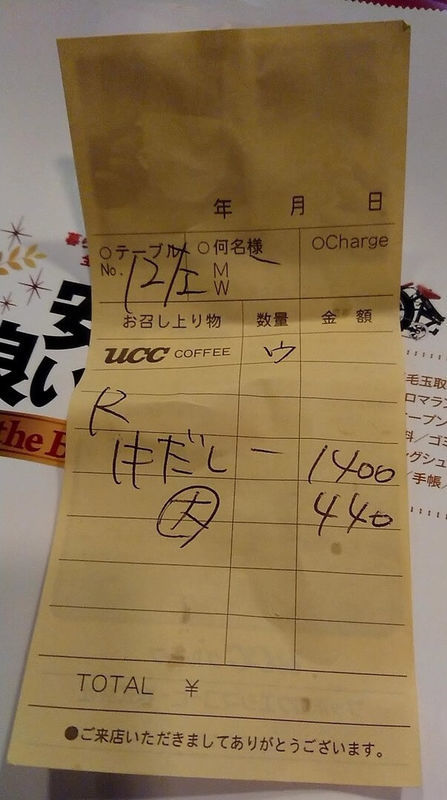 年 月 日
○テーブル ○何名様 ○Charge
No. 12/ M
W
お召し上り物 数量 金額
ucc COFFEE ウ
R
はだし 一 1400
大 440
TOTAL ¥
●ご来店いただきましてありがとうございます。
安
良い
the
毛玉取
ロマラン
ープン
手帳